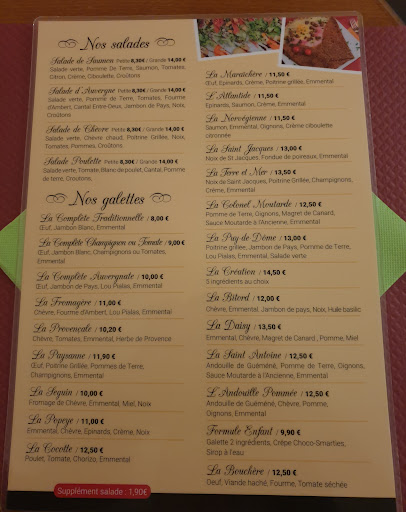 Nos salades
Salade de Saumon Petite 8,30€ / Grande 14,00 €
Salade verte, Pomme De Terre, Saumon, Tomates,
Citron, Crème, Ciboulette, Croûtons
Salade d'Auvergne Petite 8,30€ / Grande 14,00 €
Salade verte, Pomme De Terre, Tomates, Fourme
d'Ambert, Cantal Entre-Deux, Jambon de Pays, Noix,
Croûtons
Salade de Chèvre Petite 8,30€ / Grande 14,00 €
Salade verte, Chèvre chaud, Poitrine Grillée, Noix,
Tomates, Pommes, Croûtons.
Salade Poulette Petite 8,30€ / Grande 14,00 €
Salade verte, Tomate, Blanc de poulet, Cantal, Pomme
de terre, Croûtons.
Nos galettes
La Complète Traditionnelle / 8,00 €
Œuf, Jambon-Blanc, Emmental
La Complète Champignon ou Tomate / 9,00 €
Œuf, Jambon Blanc, Champignons ou Tomates,
Emmental
La Complète Auvergnate / 10,00 €
Œuf, Jambon de Pays, Lou Pialas, Emmental
La Fromagère / 11,00 €
Chèvre, Fourme d'Ambert, Lou Pialas, Emmental
La Provençale / 10,20 €
Chèvre, Tomates, Emmental, Herbe de Provence
La Paysanne / 11,90 €
Œuf, Poitrine Grillée, Pommes de Terre,
Champignons, Emmental
La Seguin / 10,00 €
Fromage de Chèvre, Emmental, Miel, Noix
La Popeye / 11,00 €
Emmental, Chèvre, Epinards, Crème, Noix
La Cocotte / 12,50 €
Poulet, Tomate, Chorizo, Emmental
Supplément salade : 1,90€
La Maraîchère / 11,50 €
Œuf, Epinards, Crème, Poitrine grillée, Emmental
L'Atlantide / 11,50 €
Epinards, Saumon, Crème, Emmental
La Norvégienne / 11,50 €
Saumon, Emmental, Oignons, Crème ciboulette
citronnée
La Saint Jacques / 13,00 €
Noix de St Jacques, Fondue de poireaux, Emmental
La Terre et Mer / 13,50 €
Noix de Saint Jacques, Poitrine Grillée, Champignons,
Crème, Emmental
La Colonel Moutarde / 12,50 €
Pomme de Terre, Oignons, Magret de Canard,
Sauce Moutarde à l'Ancienne, Emmental
La Puy de Dôme / 13,00 €
Poitrine grillée, Jambon de Pays, Pomme de Terre,
Lou Pialas, Emmental, Salade verte
La Création / 14,50 €
5 ingrédients au choix
La Bitord / 12,00 €
Chèvre, Emmental, Jambon de pays, Noix, Huile basilic
La Daisy / 13,50 €
Emmental, Chèvre, Magret de Canard , Pomme, Miel
La Saint Antoine / 12,50 €
Andouille de Guéméné, Pomme de Terre, Oignons,
Sauce Moutarde à l'Ancienne, Emmental
L'Andouille Pommée / 12,50 €
Andouille de Guéméné, Chèvre, Pomme,
Oignons, Emmental
Formule Enfant / 9,90 €
Galette 2 ingrédients, Crêpe Choco-Smarties,
Sirop à l'eau
La Bouchère / 12,50 €
Oeuf, Viande haché, Fourme, Tomate séchée